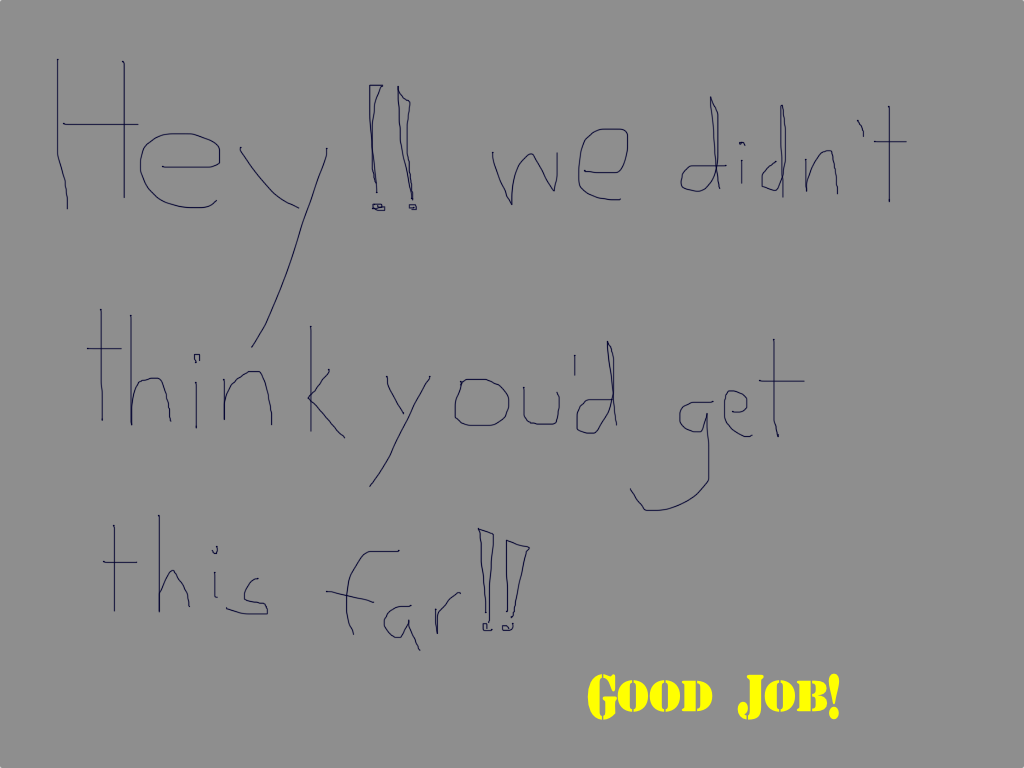 Hey!! we didn't
think you'd get
this far!!
GOOD JOB!